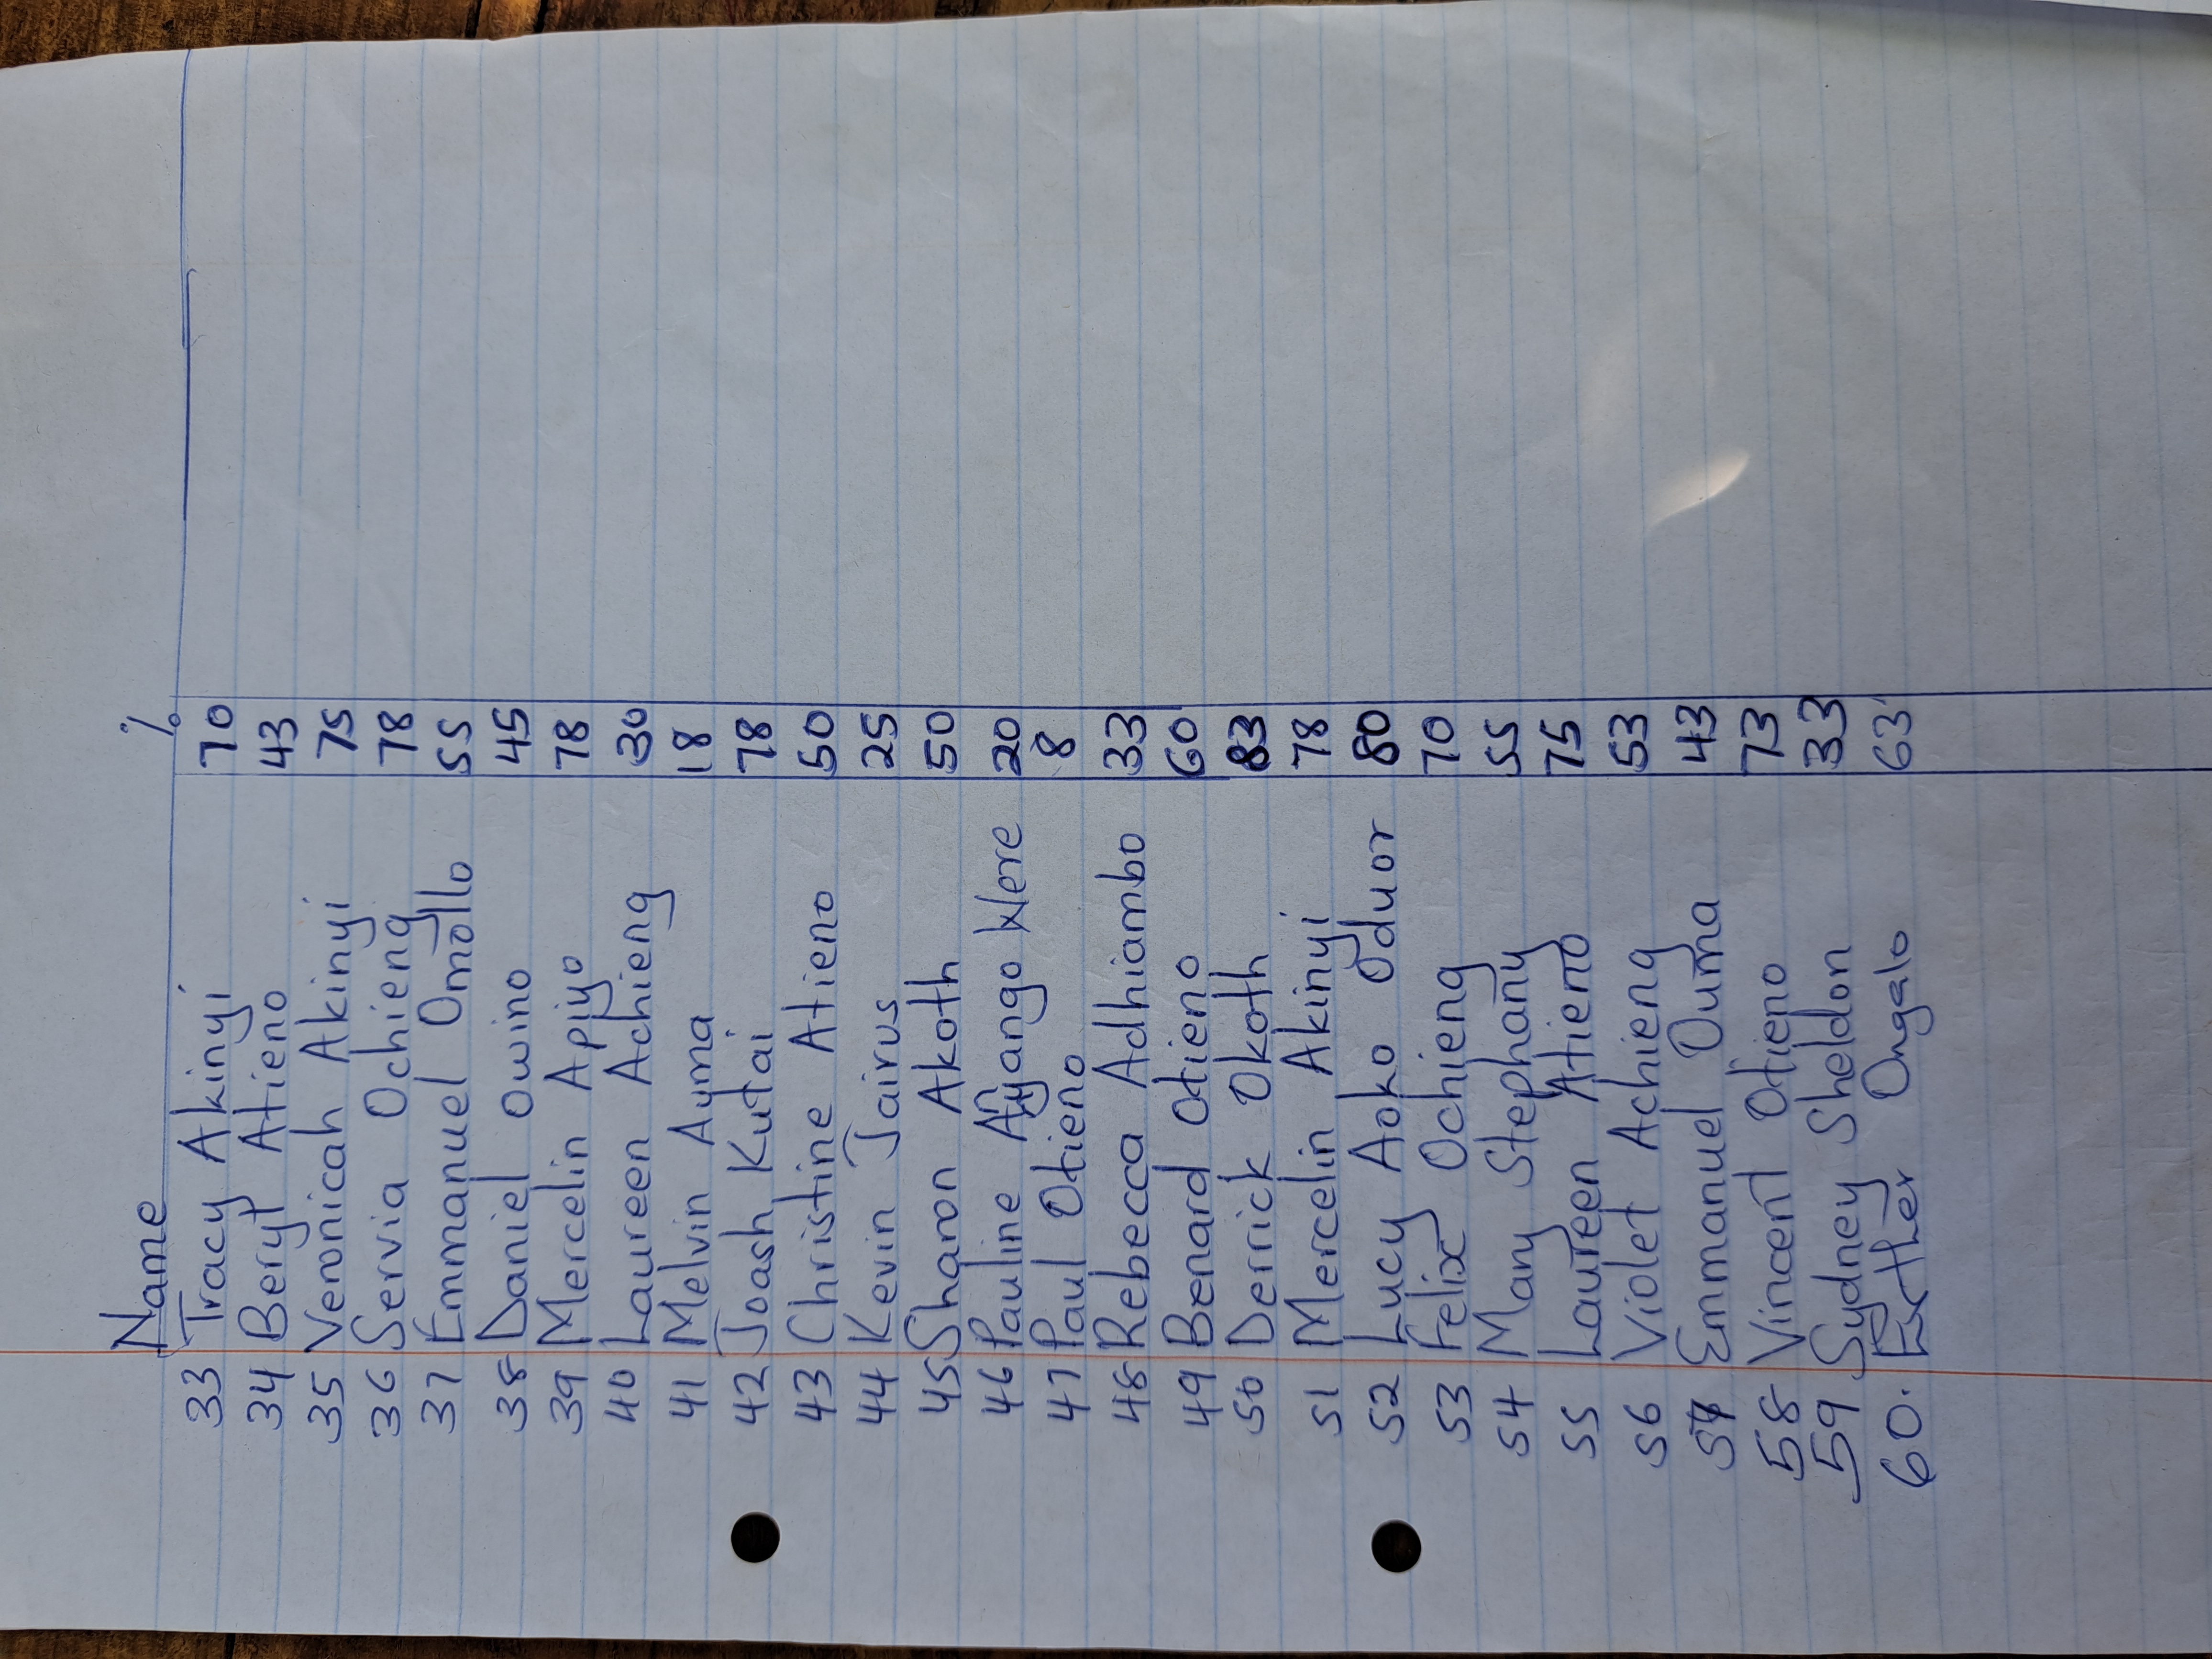 Name %
33 Tracy Akinyi 70
34 Beryl Atieno 43
35 Veronicah Akinyi 75
36 Servia Ochieng 78
37 Emmanuel Omollo 55
38 Daniel Owino 45
39 Mercelin Apiyo 78
40 Laureen Achieng 30
41 Melvin Ayma 18
42 Joash Kutai 78
43 Christine Atieno 50
44 Kevin Jairus 25
45 Sharon Akoth 50
46 Pauline Were 20
47 Paul Otieno 8
48 Rebecca Adhiambo 33
49 Benard Otieno 60
50 Derrick Okoth 83
51 Mercelin Akinyi 78
52 Lucy Aoko Oduor 80
53 Felix Ochieng 70
54 Mary Stephany 55
55 Laureen Atieno 75
56 Violet Achieng 53
57 Emmanuel Ouma 43
58 Vincent Otieno 73
59 Sydney Sheldon 33
60. Esther Ongalo 63